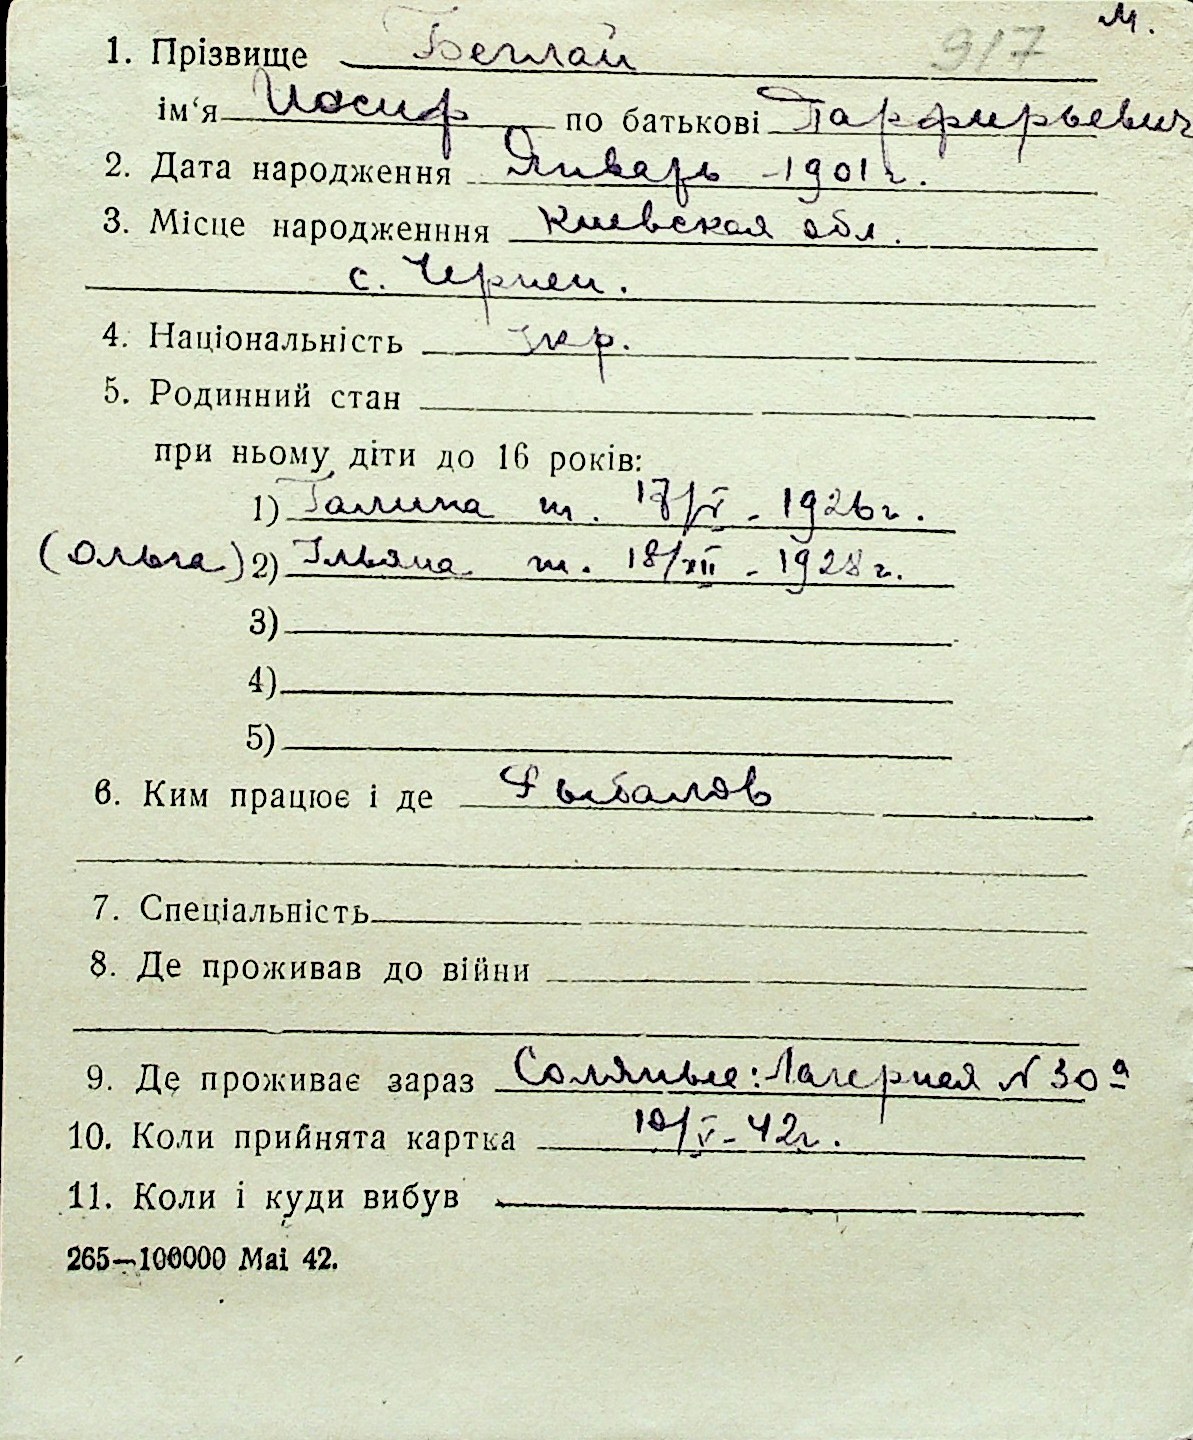 м.
917
1. Прізвище Беглай
ім'я Иосиф по батькові Парфирьевич
2. Дата народження Январь - 1901 г.
3. Місце народженння Киевская обл.
с. Черпен.
4. Національність укр.
5. Родинний стан
при ньому діти до 16 років:
1) Галина т. 17/V - 1926 г.
(Ольга) 2) Ільяна т. 18/XII - 1928 г.
3)
4)
5)
6. Ким працює і де Рыбалов
7. Спеціальність
8. Де проживав до війни
9. Де проживає зараз Соляные: Лагерная № 30 а
10. Коли прийнята картка 10/V - 42 г.
11. Коли і куди вибув
265—100000 Mai 42.